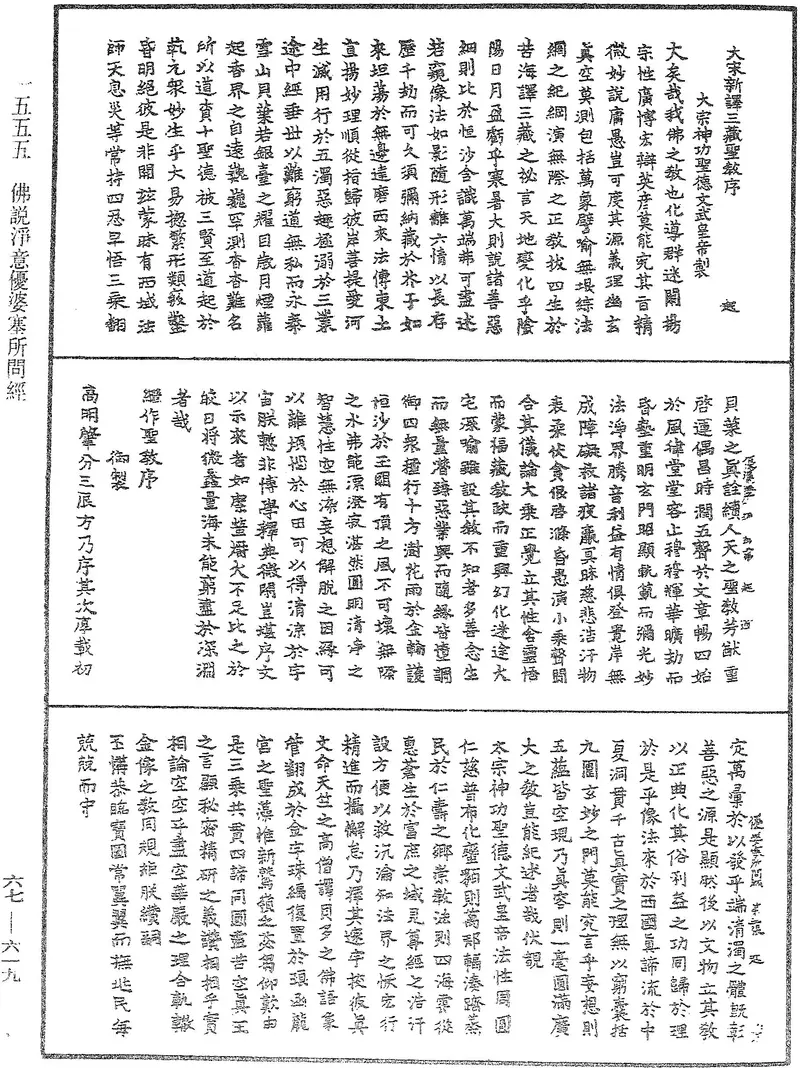 大宋新譯三藏聖教序
大宗神功聖德文武皇帝製
大矣哉我佛之教也化導群迷闡揚
宗性廣博宏辯英彥莫能究其旨精
微妙說庸愚豈可度其源義理幽玄
真空莫測包括萬象譬喻無垠綜法
網之紀綱演無際之正教拔四生於
苦海譯三藏之祕言天地變化乎陰
陽日月盈虧乎寒暑大則說諸善惡
細則比於恒沙含識萬端弗可盡述
若窺像法如影隨形離六情以長存
歷千劫而可久須彌納藏於芥子如
來坦蕩於無邊達磨西來法傳東土
宣揚妙理順從指歸彼岸菩提愛河
生滅用行於五濁惡趣拯溺於三業
途中經垂世以難窮道無私而永泰
雪山貝葉若銀臺之耀目歲月煙蘿
起香界之自遠巍巍罕測杳杳難名
所以道資十聖德被三賢至道起於
乾元眾妙生乎大易揔繁形類竅鑿
昏明絕彼是非開茲蒙昧有西域法
師天息災等常持四忍早悟三乘翻
貝葉之真詮續人天之聖教芳猷重
啓運偶昌時潤五聲於文章暢四始
於風律堂堂容止穆穆輝華曠劫而
昏墊重明玄門昭顯軌範而彌光妙
法淨界騰音利益有情俱登覺岸無
成障礙救諸疲羸真昧慈悲浩汗物
表柔伏貪很啓滌昏愚演小乘聲聞
合其儀論大乘正覺立其性含靈悟
而蒙福藏教缺而重興幻化迷途火
宅深喻雖設其教不知者多善念生
而無量潛臻惡業興而隨緣皆墮調
御四眾積行十方澍花雨於金輪護
恒沙於玉闕有頂之風不可壞無際
之水弗能漂澄寂湛然圓明清淨之
智慧性空無染妄想解脫之因緣可
以離煩惱於心田可以得清涼於宇
宙朕慙非博學釋典微閑豈堪序文
以示來者如縻螢爝火不足比之於
皎日將微蠡量海未能窮盡於深淵
者哉
繼作聖教序
御製
高明肇分三辰方乃序其次厚載初
定萬彙於以發乎端清濁之體既彰
善惡之源是顯然後以文物立其教
以正典化其俗利益之功同歸於理
於是乎像法來於西國真諦流於中
夏洞貫千古真實之理無以窮囊括
九圍玄妙之門莫能究言乎妄想則
五蘊皆空現乃真容則一毫圓滿廣
大之教豈能紀述者哉伏覩
太宗神功聖德文武皇帝法性周圓
仁慈普布化蠻貊則萬邦輻湊躋烝
民於仁壽之鄉崇教法則四海雲從
惠蒼生於富庶之域見尊經之浩汗
設方便以救沉淪知法界之恢宏行
精進而攝懈怠乃擇其邃宇校彼真
文命天竺之高僧譯貝多之佛語象
管翻成於金字珠編復置於琅函龍
宮之聖藻惟新鷲嶺之交為仰歎由
是三乘共貫四諦同圓盡苦空真正
之言顯秘密精研之義讚相相乎實
相論空空乎盡空華嚴之理合軌轍
金像之教同規矩朕纘嗣
丕搆恭臨寶圖常翼翼而撫兆民每
兢兢而守
一五五五　佛說淨意優婆塞所問經
六七－六一九